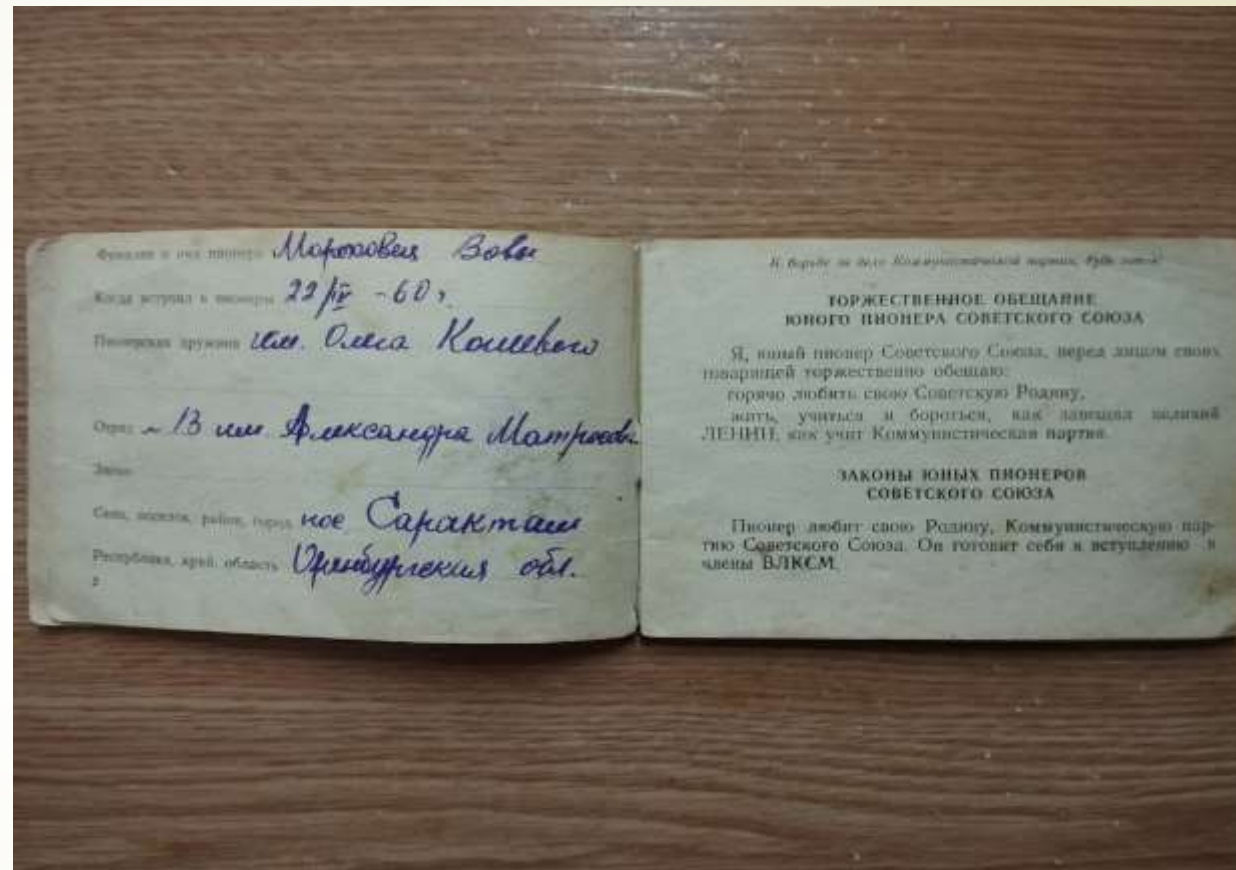 Фамилия и имя пионера Вовы
Когда вступил в пионеры 22/IV - 60 г.
Пионерская дружина им. Олега Кошевого
Отряд 13 им. Александра Матросова
Звено
Село, поселок, район, город пос Саракташ
Республика, край, область Оренбургская обл.
2
К борьбе за дело Коммунистической партии, будь готов!
ТОРЖЕСТВЕННОЕ ОБЕЩАНИЕ
ЮНОГО ПИОНЕРА СОВЕТСКОГО СОЮЗА
Я, юный пионер Советского Союза, перед лицом своих
товарищей торжественно обещаю:
горячо любить свою Советскую Родину,
жить, учиться и бороться, как завещал великий
ЛЕНИН, как учит Коммунистическая партия.
ЗАКОНЫ ЮНЫХ ПИОНЕРОВ
СОВЕТСКОГО СОЮЗА
Пионер любит свою Родину, Коммунистическую пар-
тию Советского Союза. Он готовит себя к вступлению в
члены ВЛКСМ.